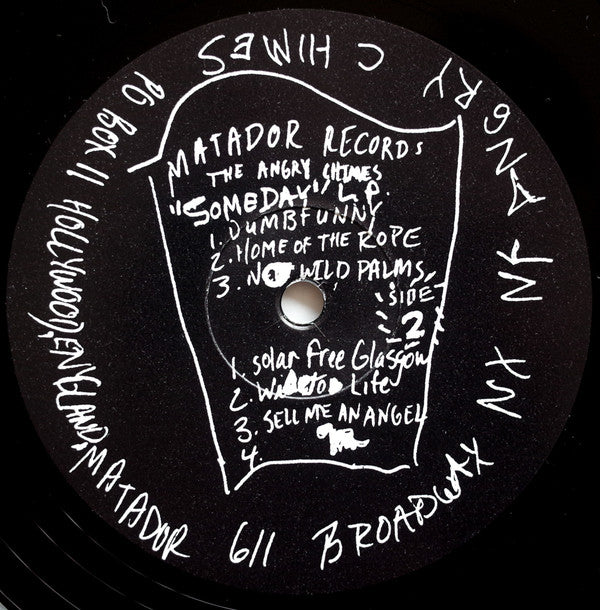 MATADOR RECORDS
THE ANGRY SHIMES
"SOMEDAY" L.P.
1. DUMBFUNNY
2. HOME OF THE ROPE
3. WILD PALMS
SIDE
2
1. Solar Free Glasgow
2. Life
3. SELL ME AN ANGEL
4.
PO BOX 11 HOLLYWOOD, ENGLAND, MATADOR 611 BROADWAY NY NY ANGRY C HIMES